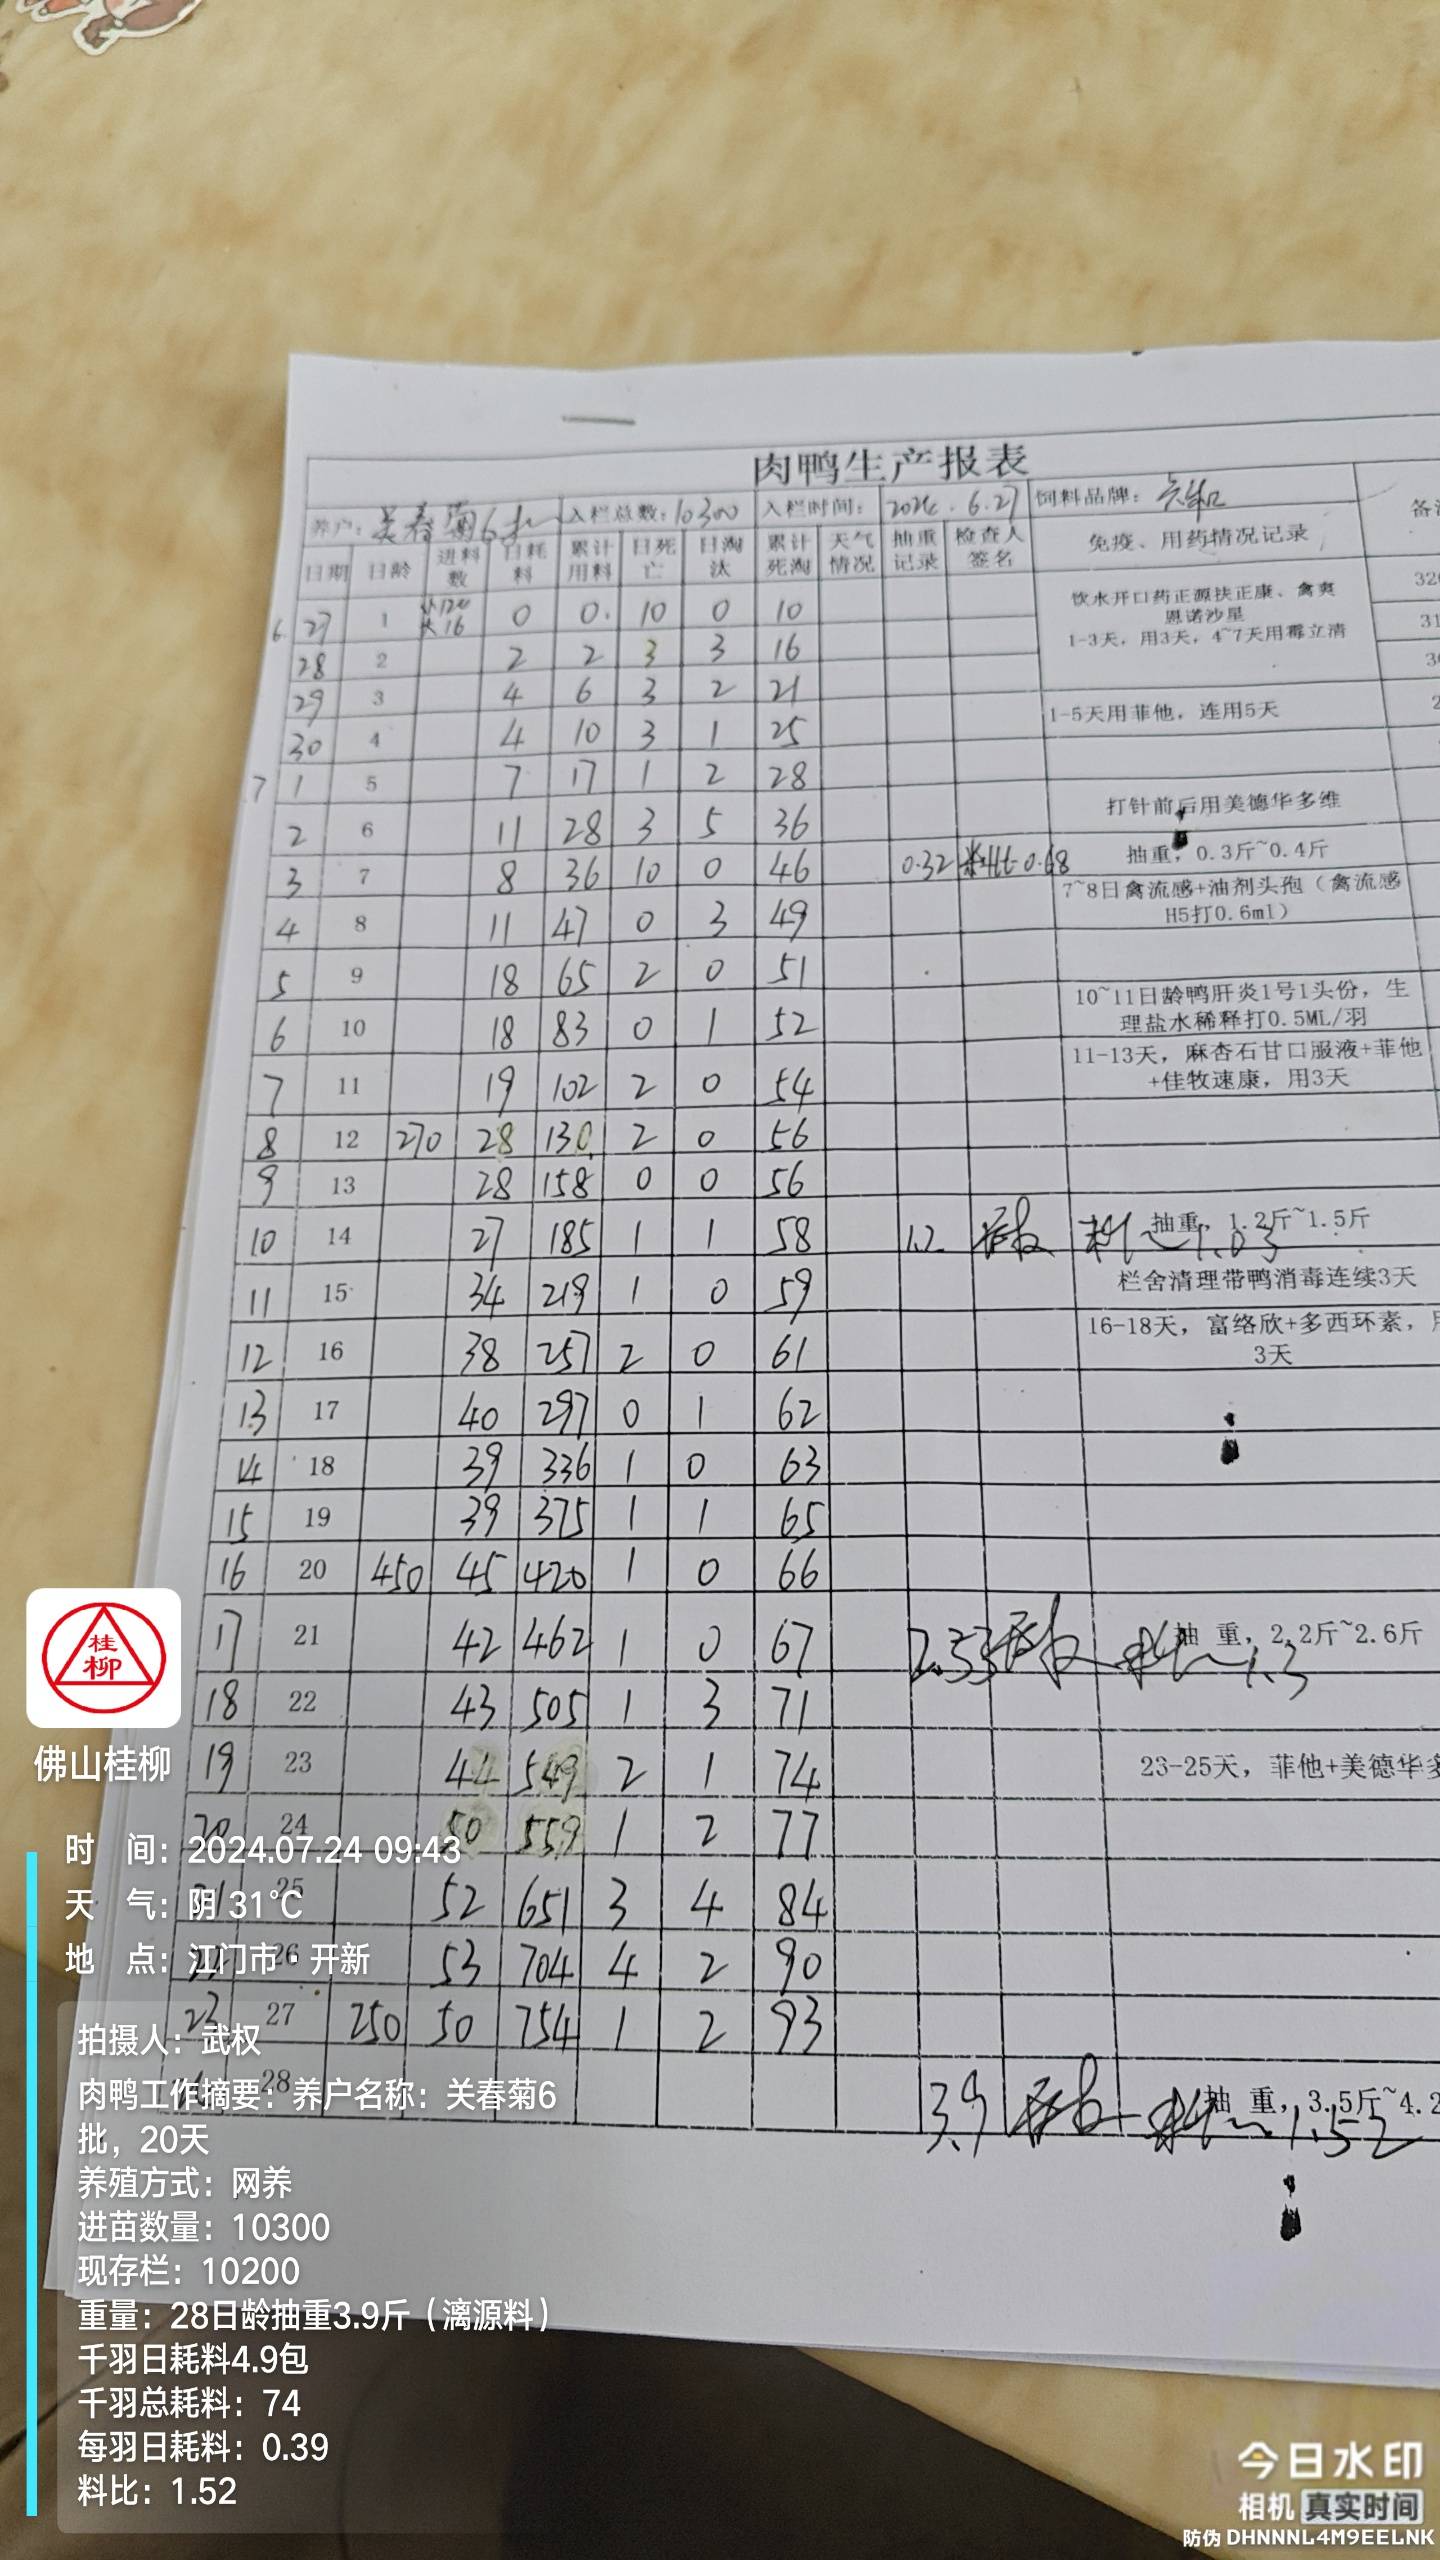 肉鸭生产报表
养户: 关春菊6批 入栏总数: 10300 入栏时间: 2024.6.27 饲料品牌: 六和
日期 日龄 进料数 日耗料 累计用料 日死亡 日淘汰 累计死淘 天气情况 抽重记录 检查人签名 免疫、用药情况记录
6. 27 1 小120 大16 0 0. 10 0 10
饮水开口药正源扶正康、禽爽
恩诺沙星
1-3天，用3天，4~7天用霉立清
28 2 2 2 3 3 16
29 3 4 6 3 2 21
30 4 4 10 3 1 25 1-5天用菲他，连用5天
7 1 5 7 17 1 2 28
2 6 11 28 3 5 36 打针前后用美德华多维
3 7 8 36 10 0 46 0.32 料比0.68 抽重，0.3斤~0.4斤
4 8 11 47 0 3 49 7~8日禽流感+油剂头孢（禽流感
H5打0.6ml）
5 9 18 65 2 0 51
6 10 18 83 0 1 52 10~11日龄鸭肝炎1号1头份，生
理盐水稀释打0.5ML/羽
7 11 19 102 2 0 54 11-13天，麻杏石甘口服液+菲他
+佳牧速康，用3天
8 12 270 28 130 2 0 56
9 13 28 158 0 0 56
10 14 27 185 1 1 58 1.2 武权 料比1.03 抽重，1.2斤~1.5斤
11 15 34 219 1 0 59 栏舍清理带鸭消毒连续3天
12 16 38 257 2 0 61 16-18天，富络欣+多西环素，用
3天
13 17 40 297 0 1 62
14 18 39 336 1 0 63
15 19 39 375 1 1 65
16 20 450 45 420 1 0 66
17 21 42 462 1 0 67 2.33 武权 料比1.3 抽 重，2.2斤~2.6斤
18 22 43 505 1 3 71
19 23 44 549 2 1 74 23-25天，菲他+美德华多
20 24 50 559 1 2 77
21 25 52 651 3 4 84
22 26 53 704 4 2 90
23 27 250 50 754 1 2 93
28 3.9 武权 料比1.52 抽 重，3.5斤~4.2
桂柳
佛山桂柳
时 间: 2024.07.24 09:43
天 气: 阴 31℃
地 点: 江门市·开新
拍摄人: 武权
肉鸭工作摘要: 养户名称: 关春菊6
批，20天
养殖方式: 网养
进苗数量: 10300
现存栏: 10200
重量: 28日龄抽重3.9斤（漓源料）
千羽日耗料4.9包
千羽总耗料: 74
每羽日耗料: 0.39
料比: 1.52
今日水印
相机 真实时间
防伪 DHNNNL4M9EELNK